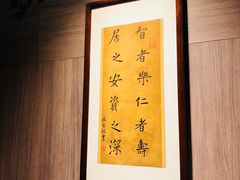 智者樂仁者壽
居之安資之深